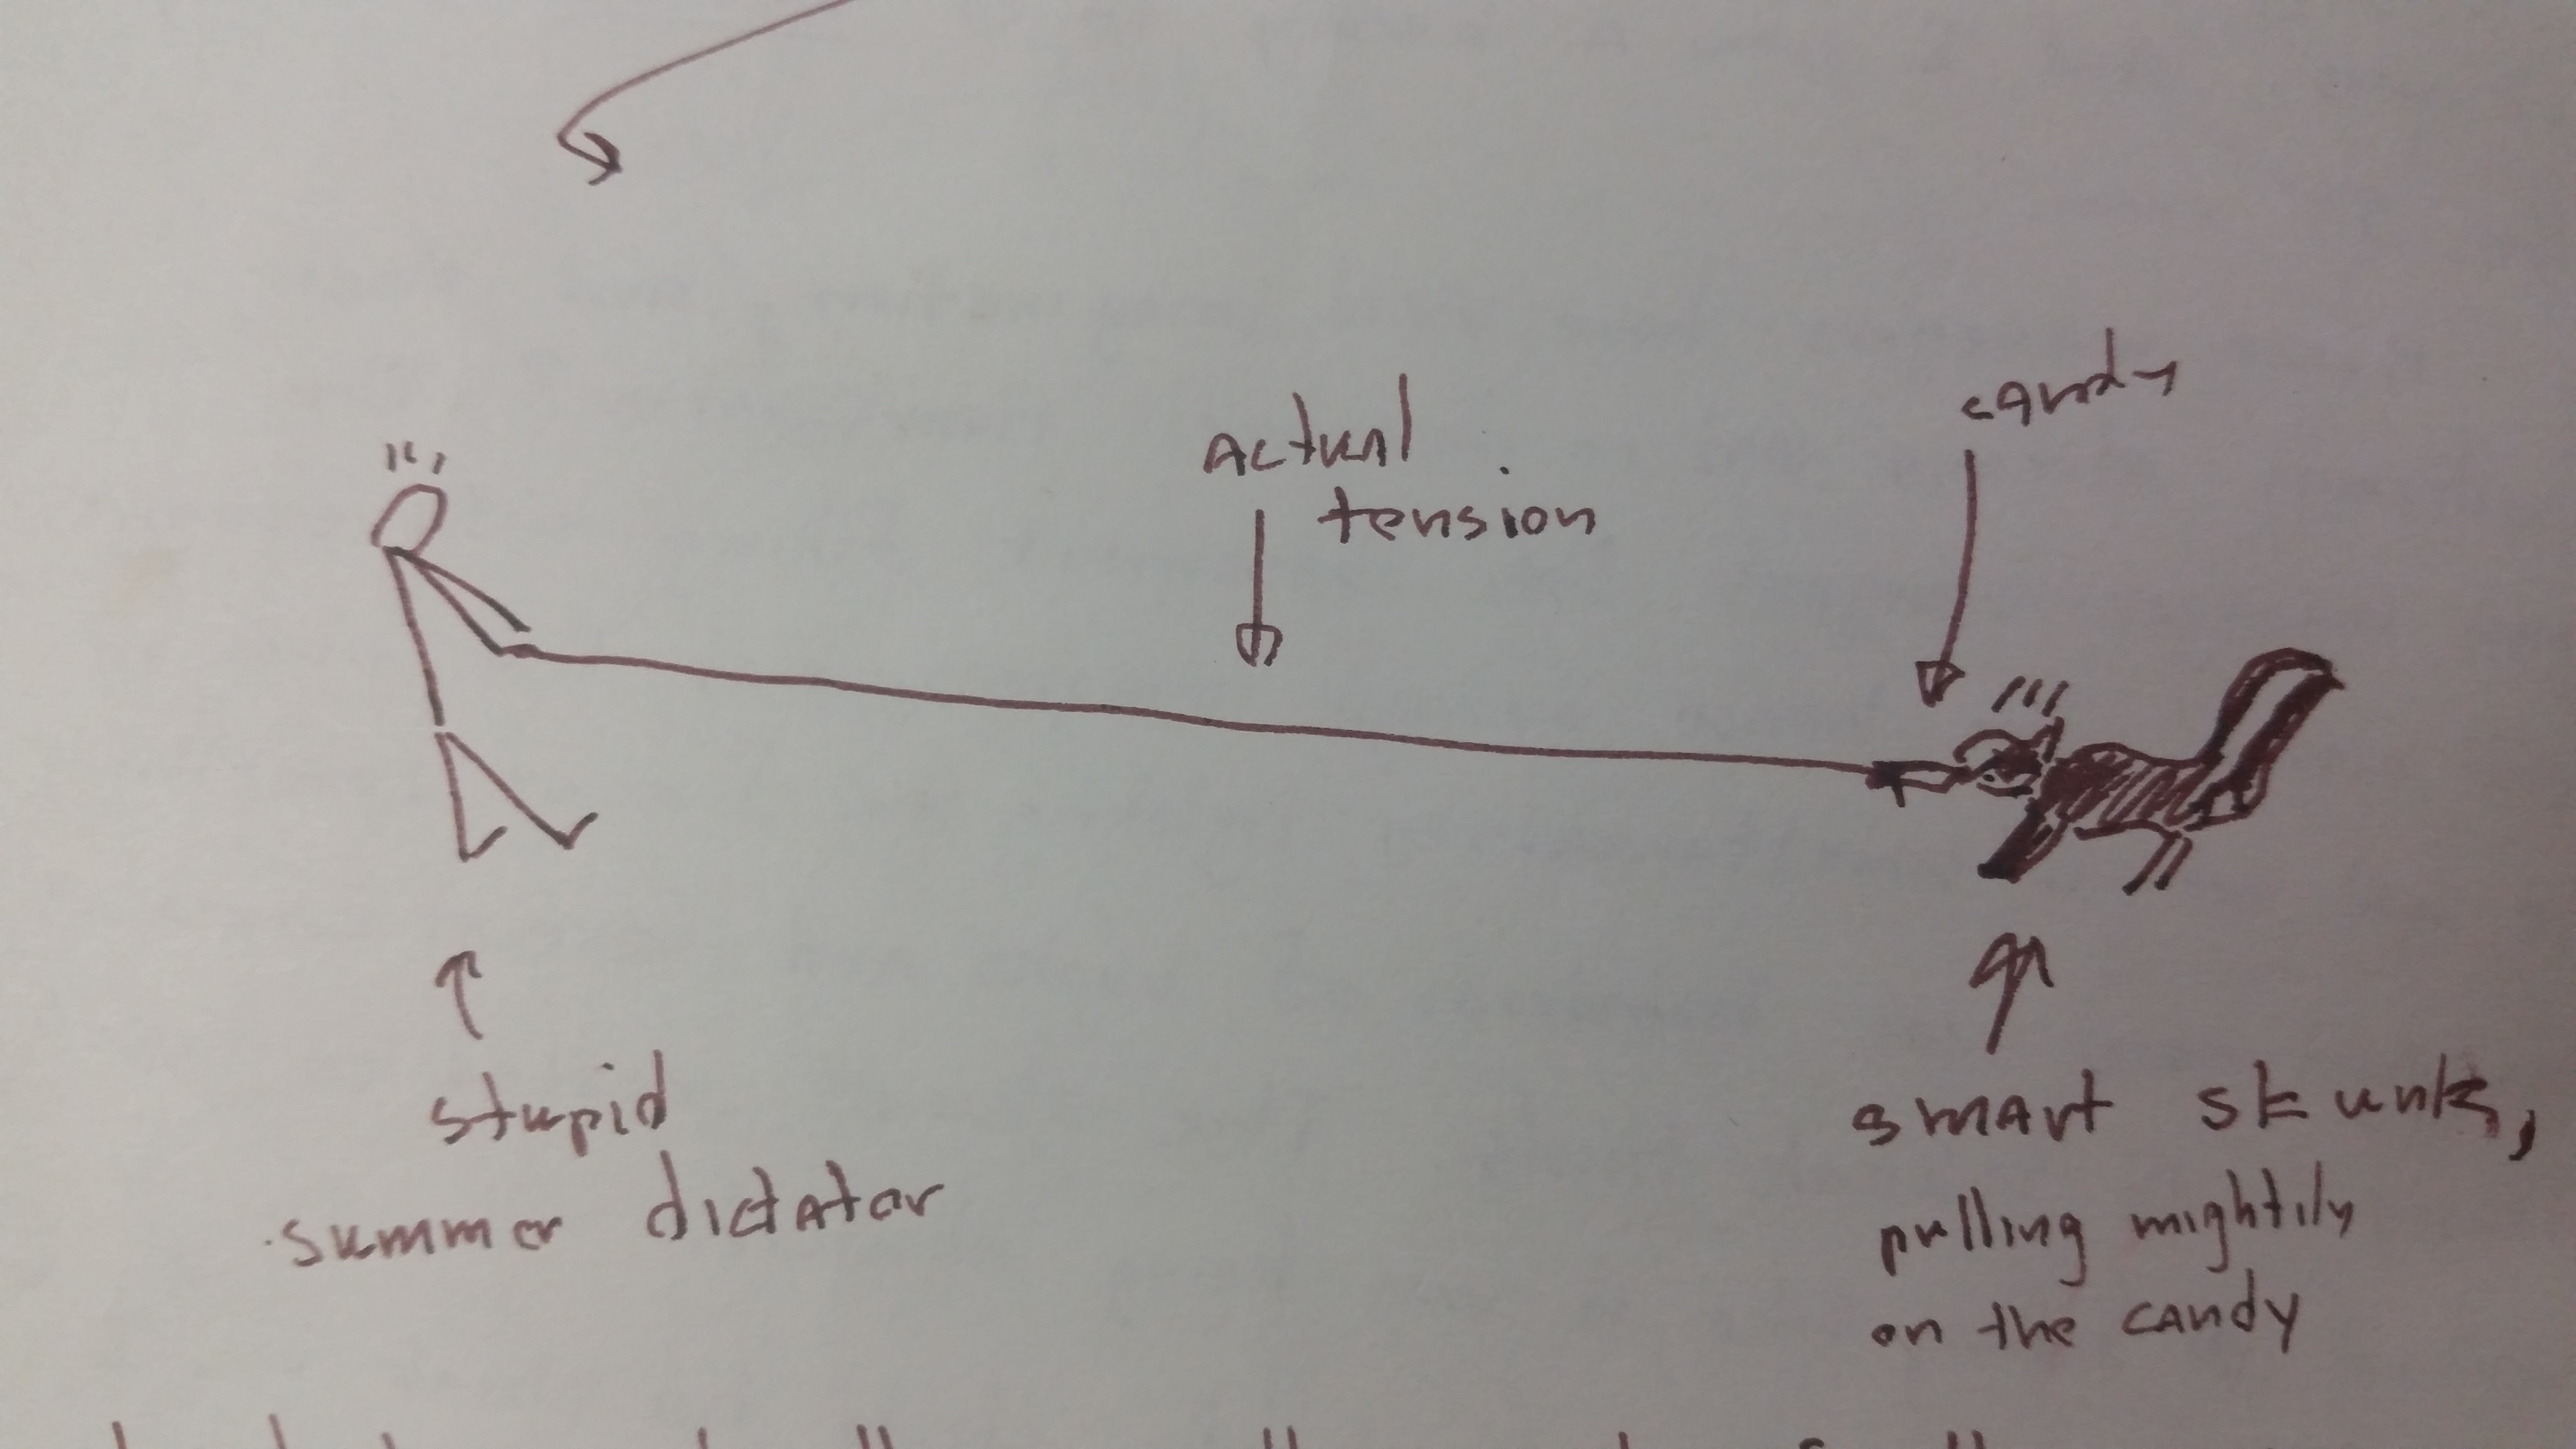 actual
tension
candy
stupid
summer dictator
smart skunk,
pulling mightily
on the candy